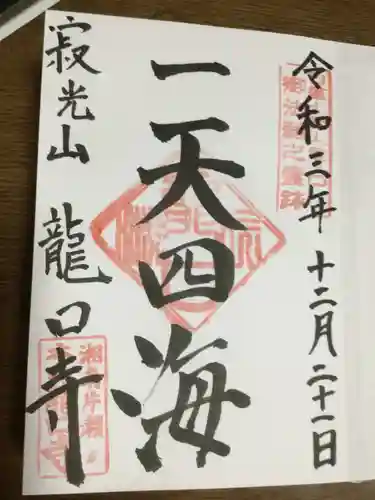 令和三年 十二月二十一日
一天四海
寂光山 龍口寺